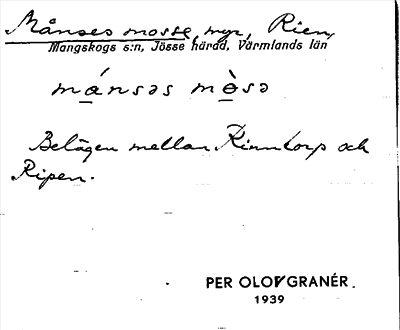 Månses mosse, myr, Rien,
Mangskogs s:n, Jösse härad, Värmlands län
mánsəs mòsə
Belägen mellan Kinntorp och
Ripen.
PER OLOV GRANÉR.
1939